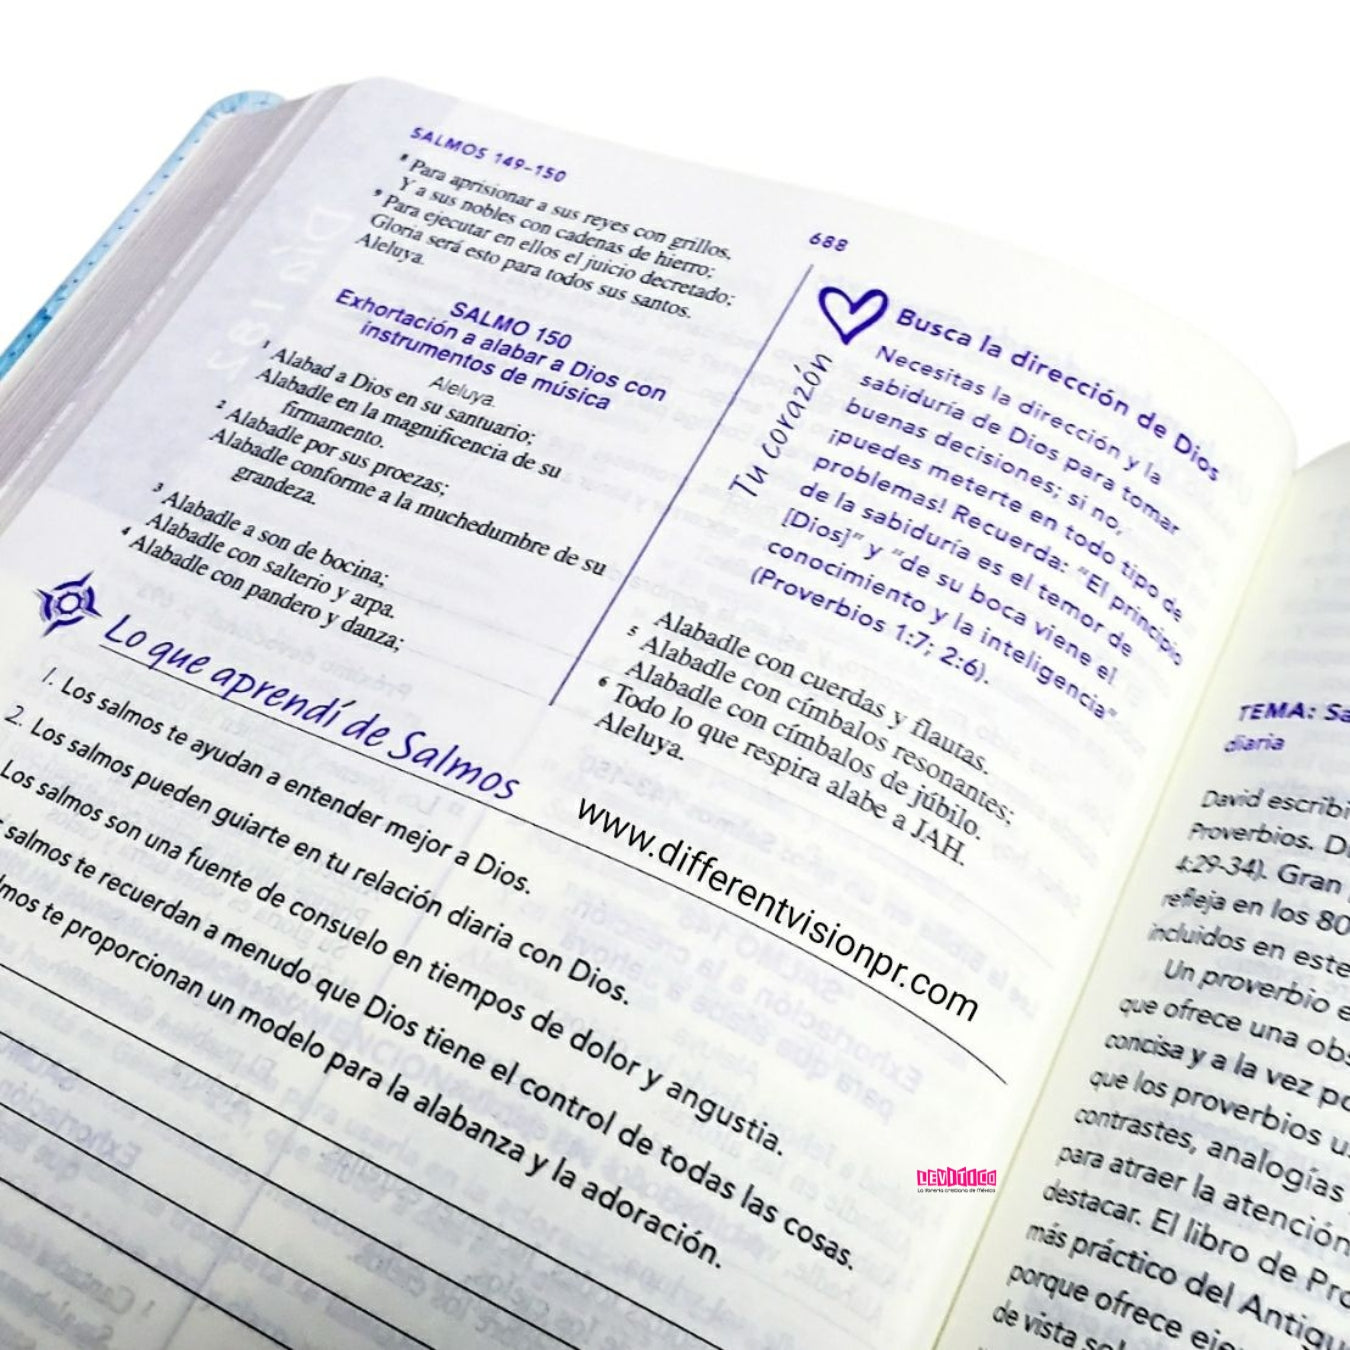 SALMOS 149-150
688
8 Para aprisionar a sus reyes con grillos,
Y a sus nobles con cadenas de hierro;
9 Para ejecutar en ellos el juicio decretado;
Gloria será esto para todos sus santos.
Aleluya.
SALMO 150
Exhortación a alabar a Dios con
instrumentos de música
Aleluya.
1 Alabad a Dios en su santuario;
Alabadle en la magnificencia de su
firmamento.
2 Alabadle por sus proezas;
Alabadle conforme a la muchedumbre de su
grandeza.
3 Alabadle a son de bocina;
Alabadle con salterio y arpa.
4 Alabadle con pandero y danza;
Tu corazón
Busca la dirección de Dios
Necesitas la dirección y la
sabiduría de Dios para tomar
buenas decisiones; si no,
¡puedes meterte en todo tipo de
problemas! Recuerda: "El principio
de la sabiduría es el temor de
[Dios]" y "de su boca viene el
conocimiento y la inteligencia"
(Proverbios 1:7; 2:6).
Alabadle con cuerdas y flautas.
5 Alabadle con címbalos resonantes;
Alabadle con címbalos de júbilo.
6 Todo lo que respira alabe a JAH.
Aleluya.
Lo que aprendí de Salmos
1. Los salmos te ayudan a entender mejor a Dios.
2. Los salmos pueden guiarte en tu relación diaria con Dios.
Los salmos son una fuente de consuelo en tiempos de dolor y angustia.
salmos te recuerdan a menudo que Dios tiene el control de todas las cosas.
te proporcionan un modelo para la alabanza y la adoración.
www.differentvisionpr.com
LEVÍTICO
La librería cristiana de México
TEMA:
diaria
David
Proverbios.
4:29-34). Gran
refleja en los 80
incluidos en este
Un proverbio
que ofrece una
concisa y a la vez
que los proverbios
contrastes, analogías
para atraer la atención
destacar. El libro de
más práctico del
porque ofrece
de vista